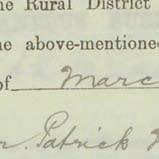 he Rural District
he above-mentione
of Marc
r. Patrick